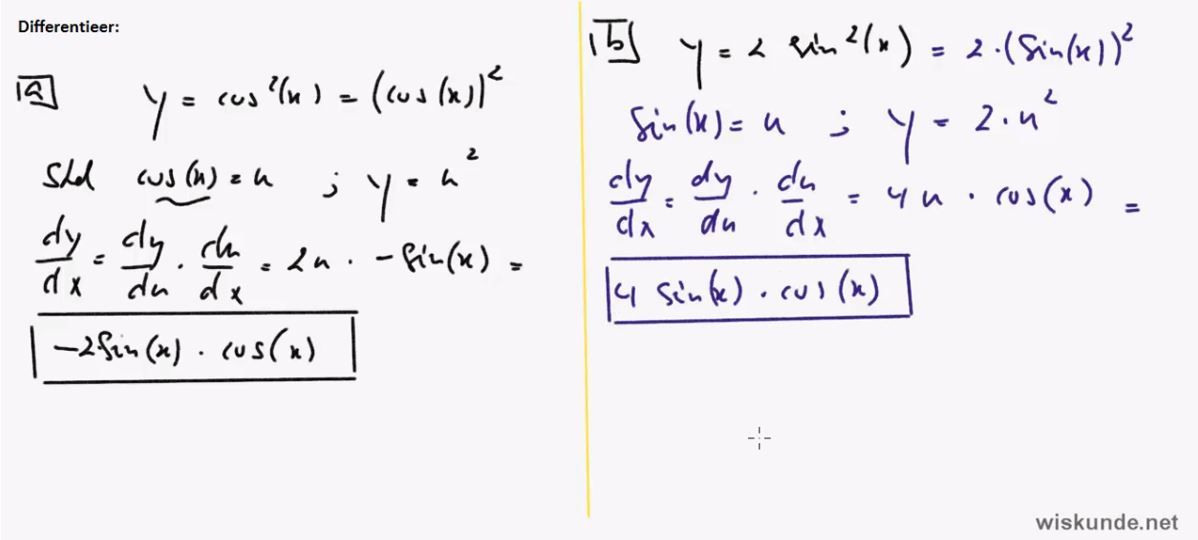 Differentieer:
a y = cos²(x) = (cos(x))²
Stel cos(x) = u ; y = u²
dy/dx = dy/du · du/dx = 2u · -sin(x) =
-2sin(x) · cos(x)
b y = 2 sin²(x) = 2·(sin(x))²
sin(x) = u ; y = 2·u²
dy/dx = dy/du · du/dx = 4u · cos(x) =
4 sin(x) · cos(x)
wiskunde.net